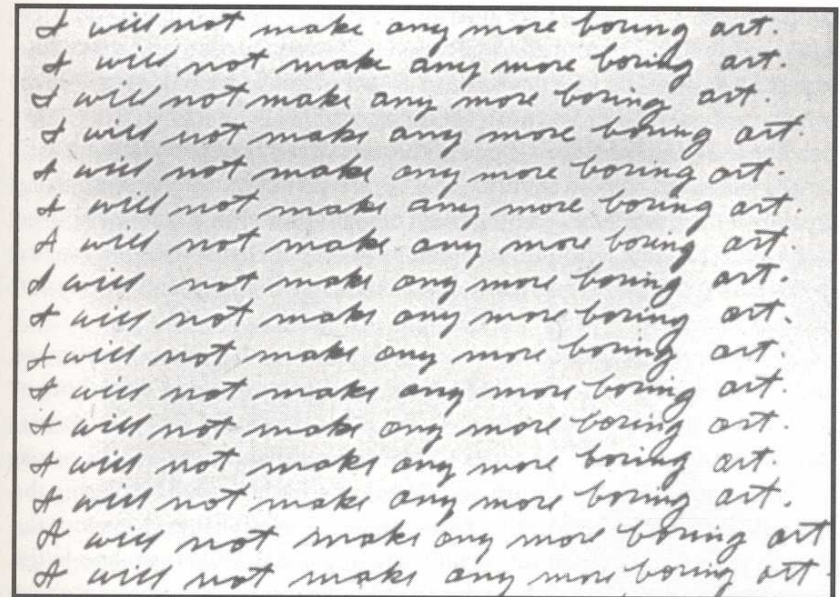 I will not make any more boring art.
I will not make any more boring art.
I will not make any more boring art.
I will not make any more boring art.
I will not make any more boring art.
I will not make any more boring art.
I will not make any more boring art.
I will not make any more boring art.
I will not make any more boring art.
I will not make any more boring art.
I will not make any more boring art.
I will not make any more boring art.
I will not make any more boring art.
I will not make any more boring art.
I will not make any more boring art
I will not make any more boring art